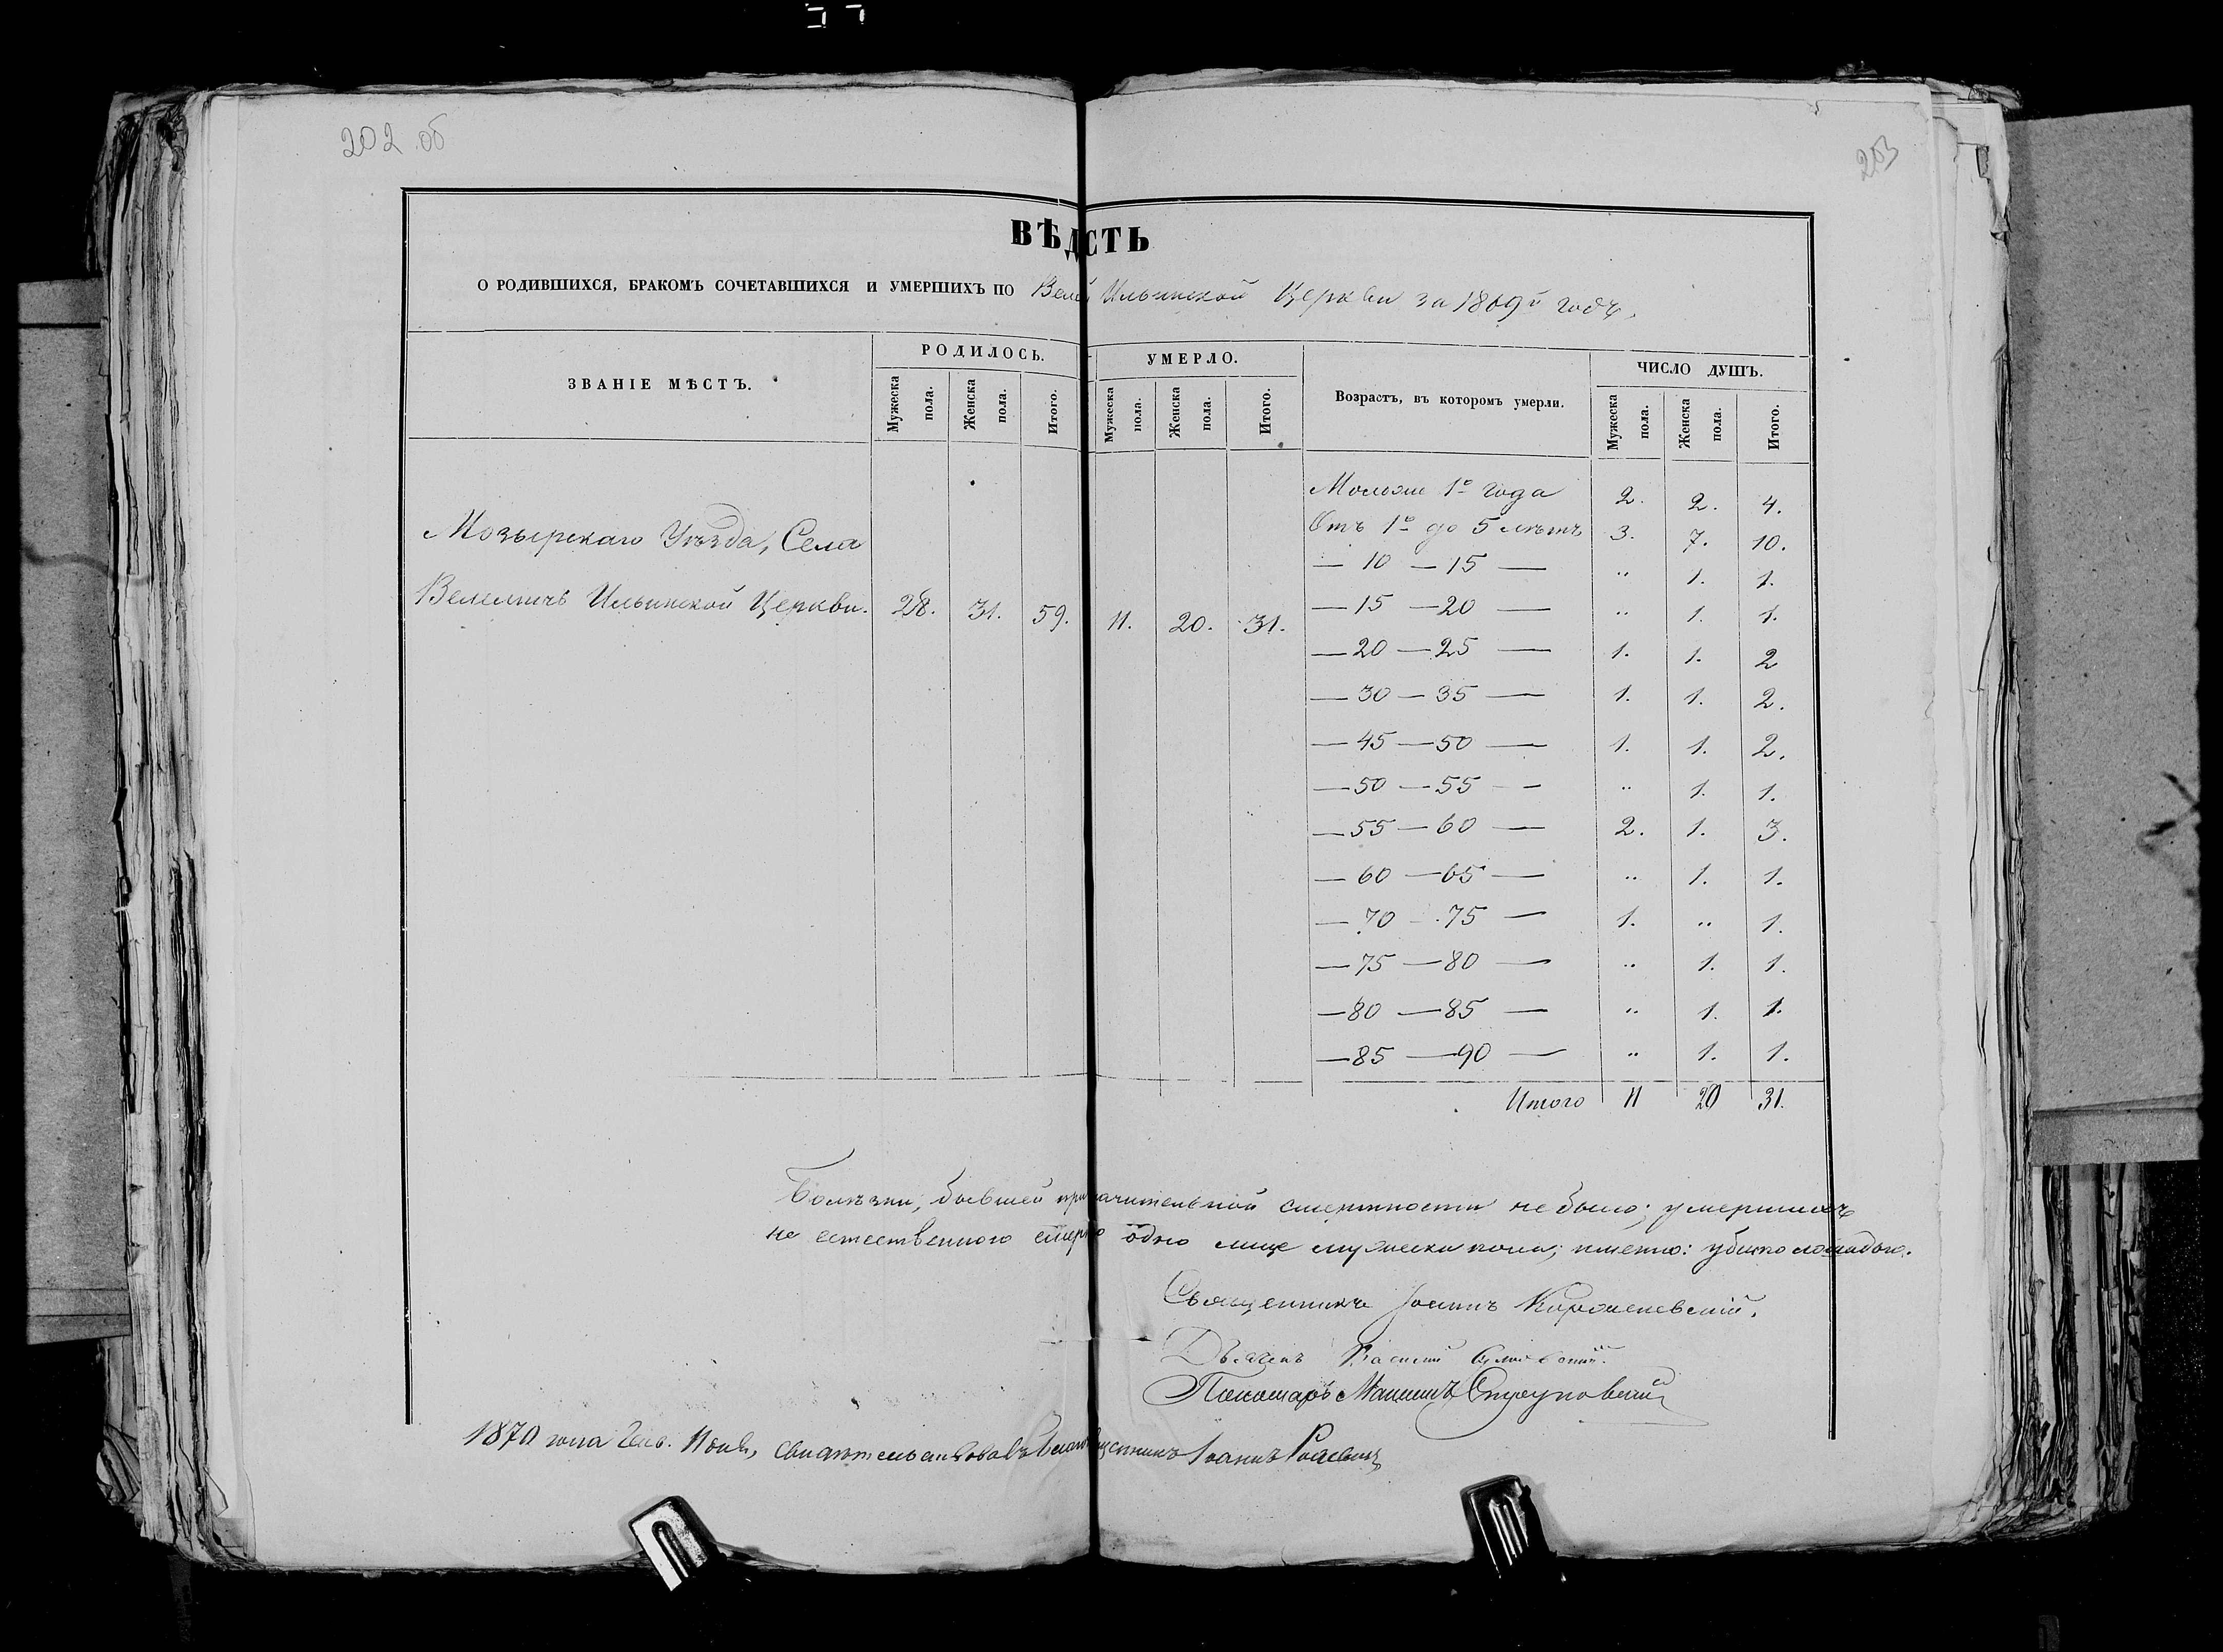 202 об
203
ВѢД СТЬ
О РОДИВШИХСЯ, БРАКОМЪ СОЧЕТАВШИХСЯ И УМЕРШИХЪ ПО Веле Ильинской Церкви за 1869й годъ.
ЗВАНІЕ МѢСТЪ. РОДИЛОСЬ. УМЕРЛО. Возрастъ, въ которомъ умерли. ЧИСЛО ДУШЪ.
Мужеска пола. Женска пола. Итого. Мужеска пола. Женска пола. Итого. Мужеска пола. Женска пола. Итого.
Моложе 1го года 2. 2. 4.
Мозырскаго Уѣзда, Села
Отъ 1го до 5 лѣтъ 3. 7. 10.
— 10 — 15 — „ 1. 1.
Велемичъ Ильинской Церкви. 28. 31. 59. 11. 20. 31.
— 15 — 20 — „ 1. 1.
— 20 — 25 — 1. 1. 2
— 30 — 35 — 1. 1. 2.
— 45 — 50 — 1. 1. 2.
— 50 — 55 — „ 1. 1.
— 55 — 60 — 2. 1. 3.
— 60 — 65 — „ 1. 1.
— 70 — 75 — 1. „ 1.
— 75 — 80 — „ 1. 1.
— 80 — 85 — „ 1. 1.
— 85 — 90 — „ 1. 1.
Итого 11 20 31.
Болѣзни, бывшей при чительной смертности не было; умершихъ
не естественного смер о одно лице мужеска пола; именно: убито лошадью.
Священникъ Іоаннъ
Дьячекъ Василій
Пономаръ
1870 года Генв. свидѣтельствовалъ Благо щенникъ Іоаннъ